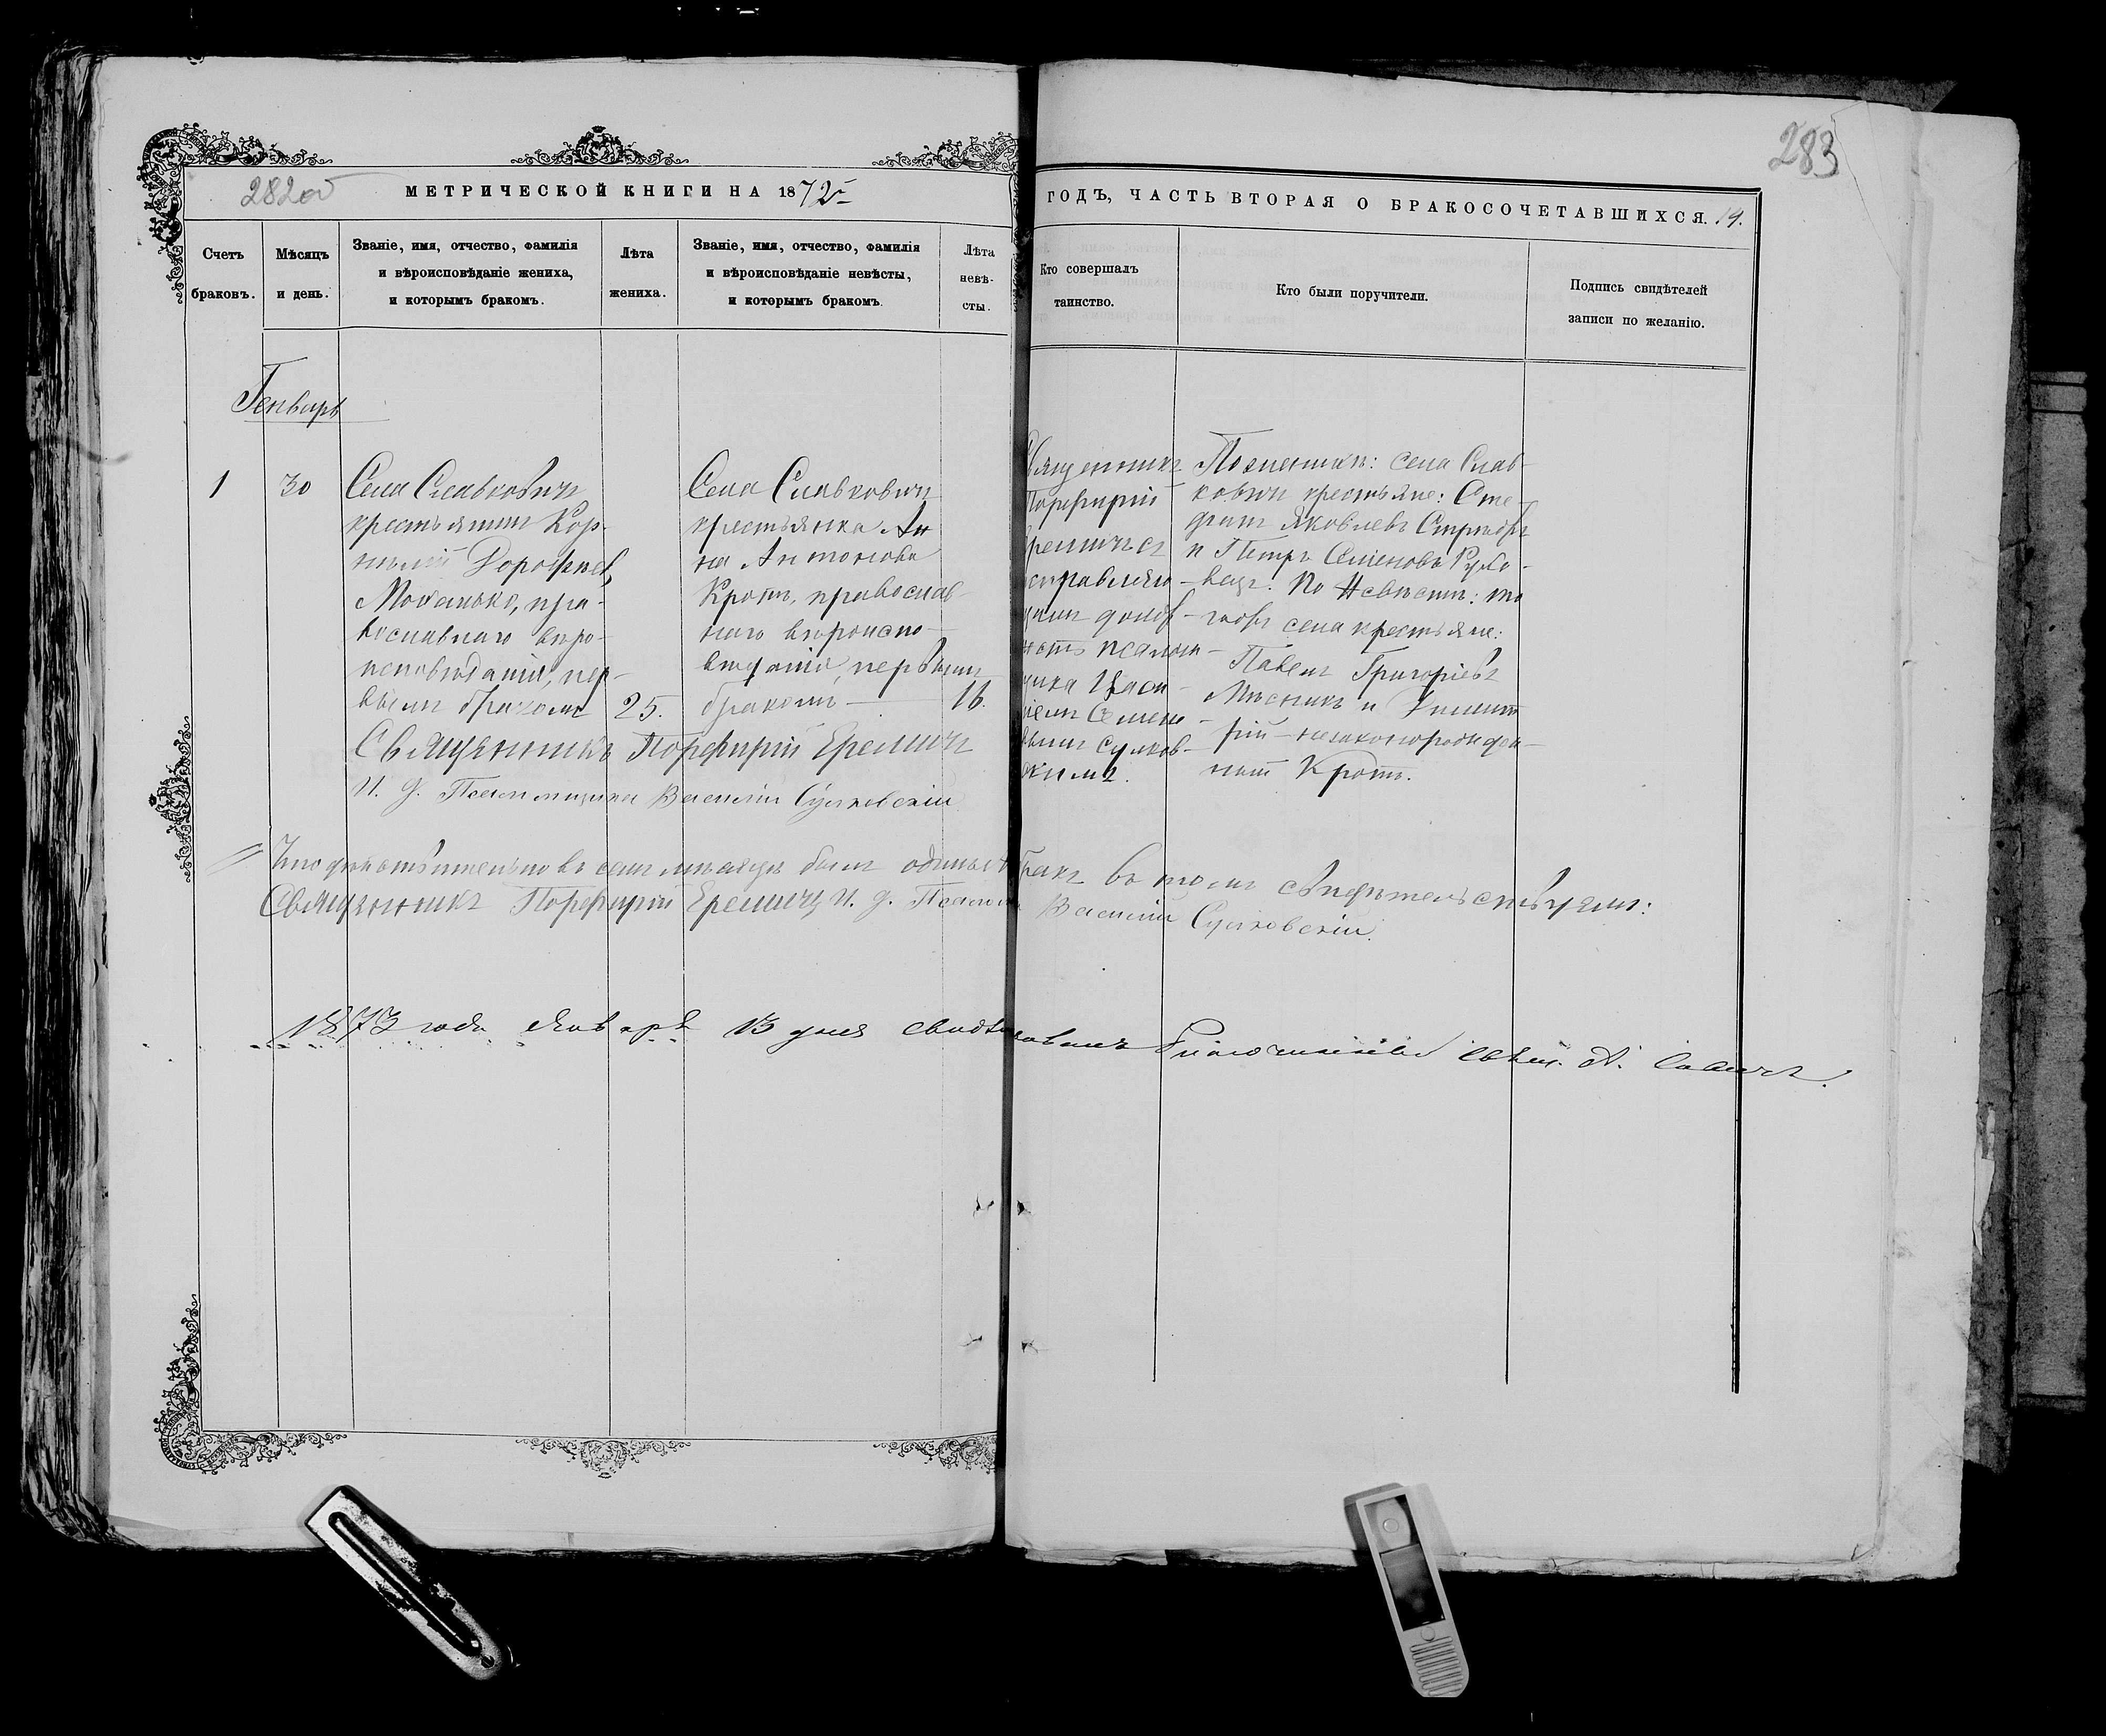 283
282об
МЕТРИЧЕСКОЙ КНИГИ НА 1872й
ГОДЪ, ЧАСТЬ ВТОРАЯ О БРАКОСОЧЕТАВШИХСЯ. 19.
Счетъ
браковъ.
Мѣсяцъ
и день.
Званіе, имя, отчество, фамилія
и вѣроисповѣданіе жениха,
и которымъ бракомъ.
Лѣта
жениха.
Званіе, имя, отчество, фамилія
и вѣроисповѣданіе невѣсты,
и которымъ бракомъ.
Лѣта
невѣ-
сты.
Кто совершалъ
таинство.
Кто были поручители.
Подпись свидѣтелей
записи по желанію.
Генварь
1
30
Села Славковичи
крестьянинъ Кор-
нилій Дорофѣевъ
Моканько, пра-
вославнаго вѣро-
исповѣданія, пер-
вымъ бракомъ
25.
Села Славковичи
крестьянка Ан
на Антонова
Кротъ, православ-
наго вѣроиспо-
вѣданія, первымъ
бракомъ
16.
Священникъ
Порфирій
Еремичъ съ
исправляю-
щимъ долж-
ность псалом-
щика Васи-
ліемъ Семено-
вымъ Сулков-
скимъ.
По женихѣ: села Слав-
ковичи крестьяне: Сте-
фанъ Яковлевъ
и Петръ Семеновъ Рубо-
вецъ. По Невѣстѣ: то
гожъ села крестьяне:
Павелъ Григоріевъ
Мясникъ и Димит-
рій незаконорожден-
ный Кротъ.
Священникъ Порфирій Еремичъ
И. д. Псаломщика Василій Сулковскій
Что дѣйствительно въ семъ мѣсяцѣ былъ одинъ бракъ въ томъ свидѣтельствуемъ:
Священникъ Порфирій Еремичъ И. д. Псалом Василій Сулковскій.
1873 года Января 13 дня свидѣтельствовалъ Благочинный Свящ. А. Савичъ.